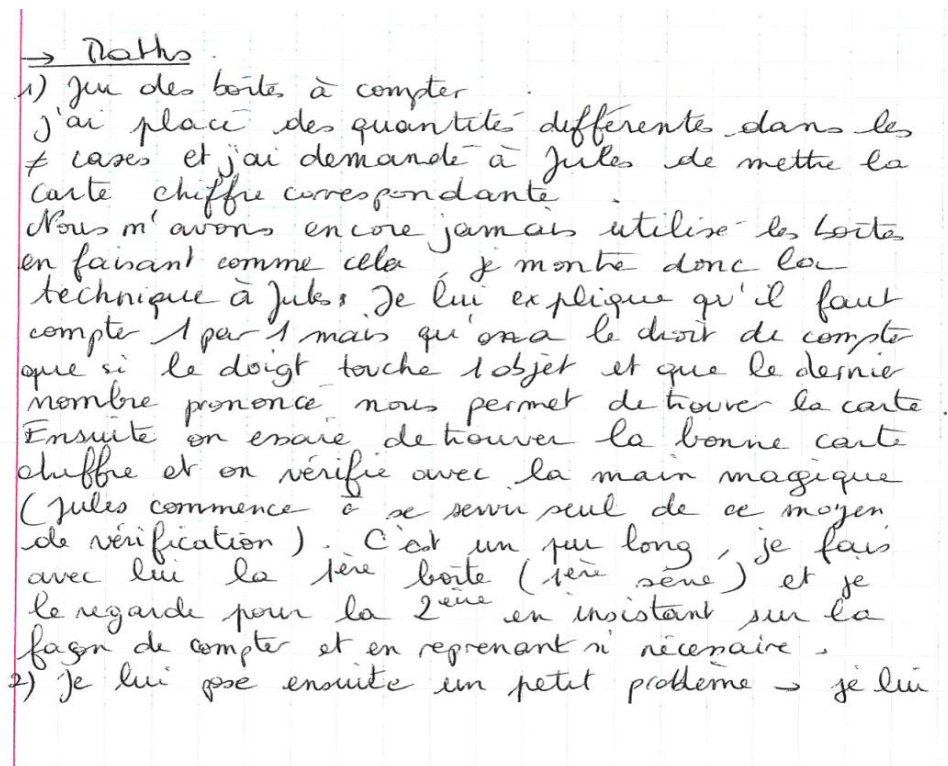 → Maths.
1) Jeu des boîtes à compter
j'ai placé des quantités différentes dans les
≠ cases et j'ai demandé à Jules de mettre la
carte chiffre correspondante.
Nous n'avons encore jamais utilisé les boîtes
en faisant comme cela, je montre donc la
technique à Jules. Je lui explique qu'il faut
compter 1 par 1 mais qu'on a le droit de compter
que si le doigt touche 1 objet et que le dernier
nombre prononcé nous permet de trouver la carte.
Ensuite on essaie de trouver la bonne carte
chiffre et on vérifie avec la main magique
(Jules commence à se servir seul de ce moyen
de vérification). C'est un peu long, je fais
avec lui la 1ère boîte (1ère série) et je
le regarde pour la 2ème en insistant sur la
façon de compter et en reprenant si nécessaire.
2) Je lui pose ensuite un petit problème → je lui